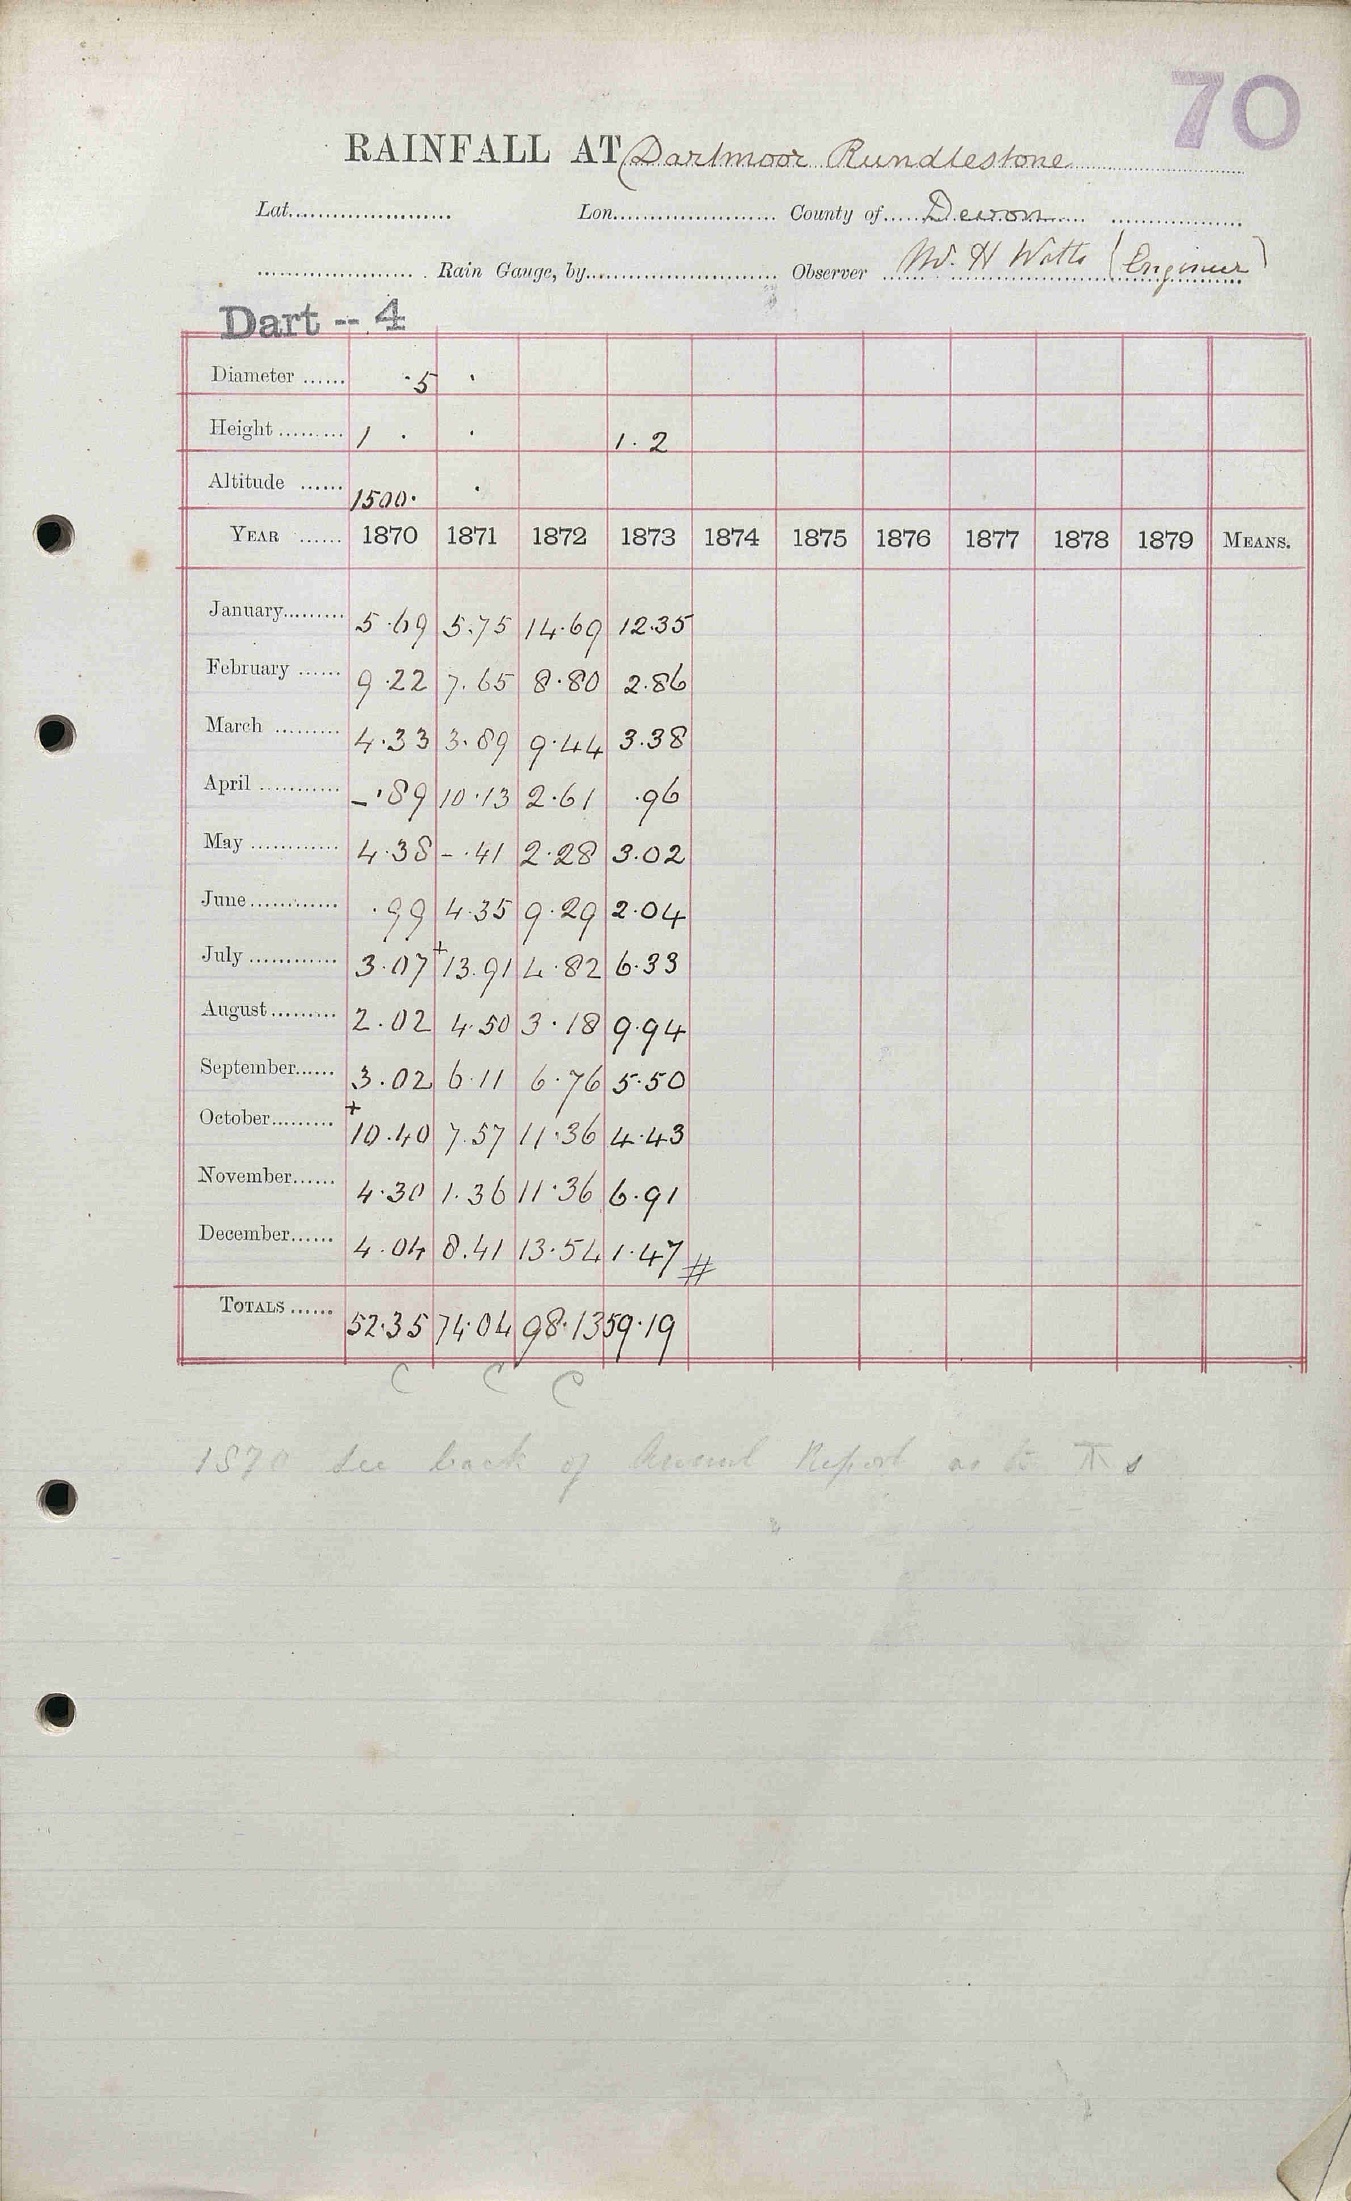 70
RAINFALL AT Dartmoor Rundlestone
Lat. Lon. County of Devon
Rain Gauge, by Observer Mr. H Watts (Engineer)
Dart -- 4
Diameter ...... ·5 ·
Height ......... 1 · · 1·2
Altitude ...... 1500· ·
YEAR ...... 1870 1871 1872 1873 1874 1875 1876 1877 1878 1879 MEANS.
January......... 5·69 5.75 14·69 12.35
February ...... 9·22 7.65 8·80 2.86
March ......... 4·33 3.89 9·44 3.38
April ........... –·89 10·13 2·61 ·96
May ............ 4·38 –·41 2·28 3.02
June ............ ·99 4·35 9·29 2·04
July ............ 3·07 +13.91 4·82 6·33
August ......... 2·02 4·50 3·18 9·94
September...... 3·02 6·11 6·76 5·50
October......... +10·40 7·57 11·36 4·43
November...... 4·30 1·36 11·36 6·91
December...... 4·04 8.41 13·54 1·47 #
TOTALS ...... 52·35 74·04 98·13 59·19
C C C
1870 See back of Annual Report as to